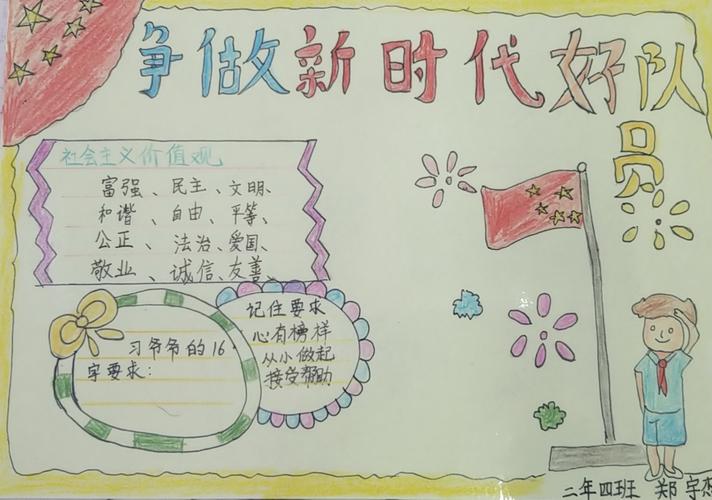 争做新时代好队员
社会主义价值观
富强、民主、文明、
和谐、自由、平等、
公正、法治、爱国、
敬业、诚信、友善
习爷爷的16
字要求:
记住要求
心有榜样
从小做起
接受帮助
二年四班 郑宇